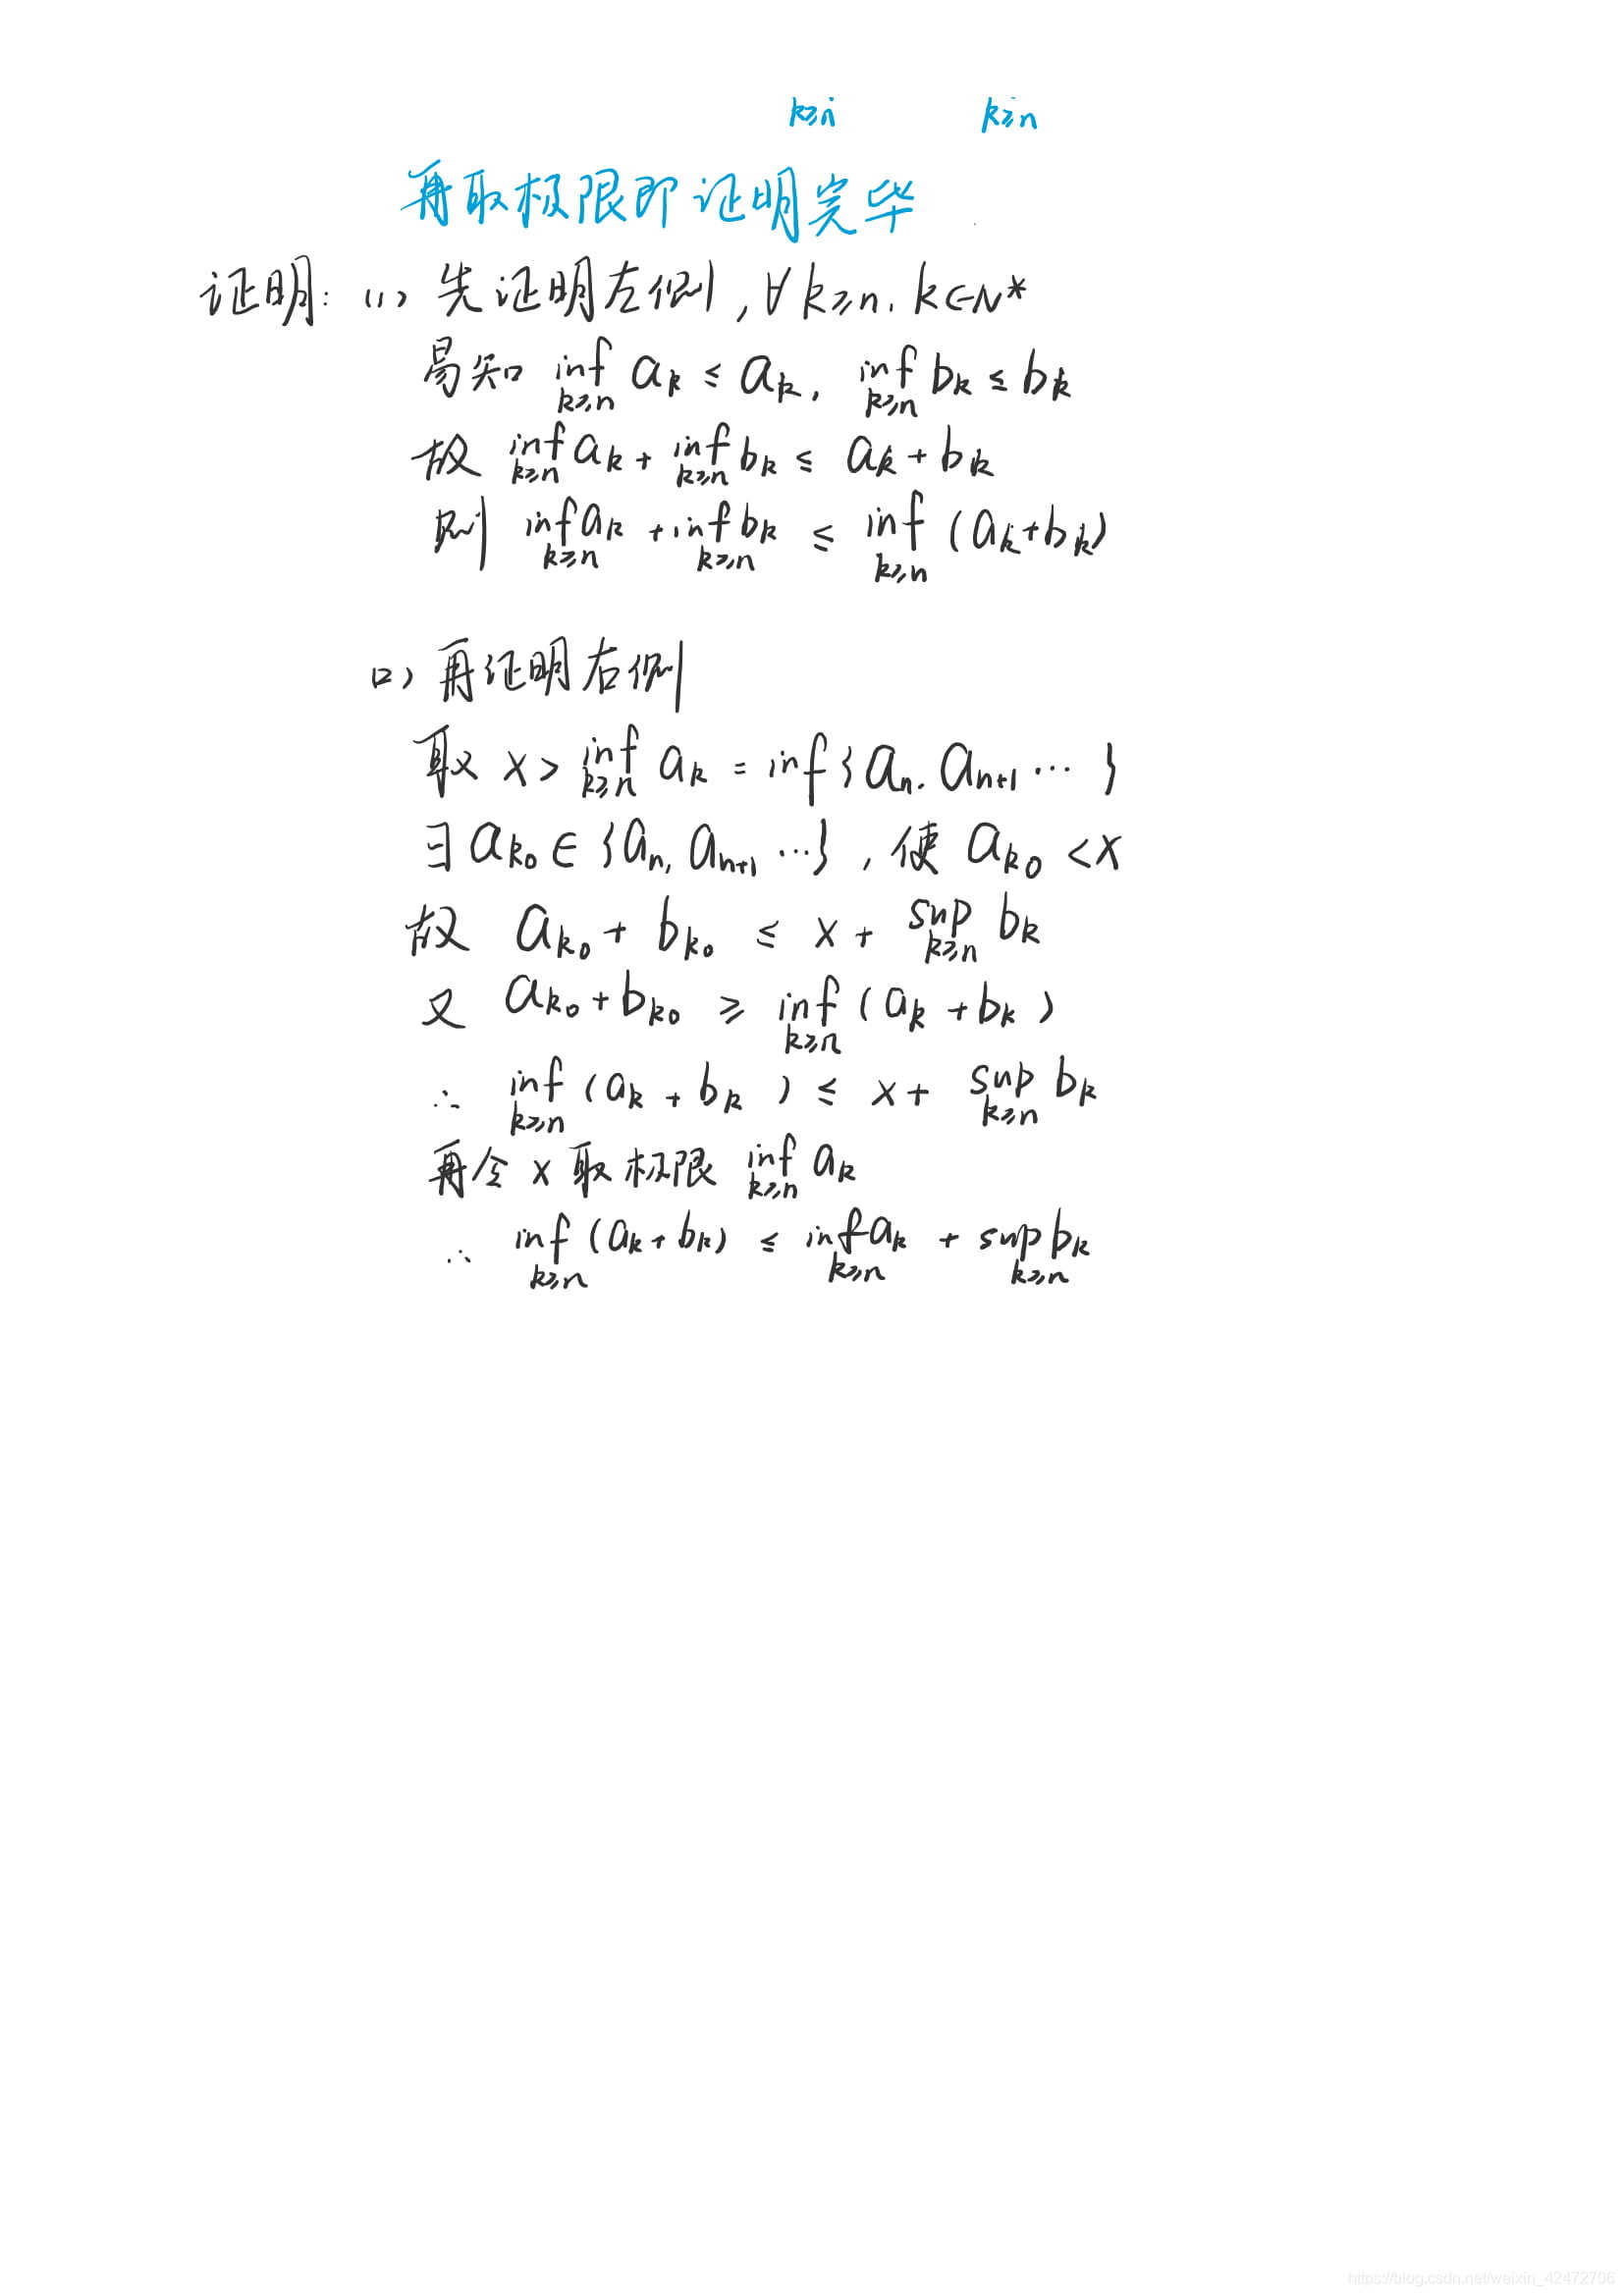 k≥n k≥n
再取极限即证明完毕
证明: (1) 先证明左侧, ∀k≥n, k∈N*
易知 inf_{k≥n} a_k ≤ a_k, inf_{k≥n} b_k ≤ b_k
故 inf_{k≥n} a_k + inf_{k≥n} b_k ≤ a_k + b_k
则 inf_{k≥n} a_k + inf_{k≥n} b_k ≤ inf_{k≥n} (a_k + b_k)
(2) 再证明右侧
取 x > inf_{k≥n} a_k = inf {a_n, a_{n+1} ⋯ }
∃ a_{k_0} ∈ {a_n, a_{n+1} ⋯}, 使 a_{k_0} < x
故 a_{k_0} + b_{k_0} ≤ x + sup_{k≥n} b_k
又 a_{k_0} + b_{k_0} ≥ inf_{k≥n} (a_k + b_k)
∴ inf_{k≥n} (a_k + b_k) ≤ x + sup_{k≥n} b_k
再令 x 取极限 inf_{k≥n} a_k
∴ inf_{k≥n} (a_k + b_k) ≤ inf_{k≥n} a_k + sup_{k≥n} b_k
https://blog.csdn.net/weixin_42472706